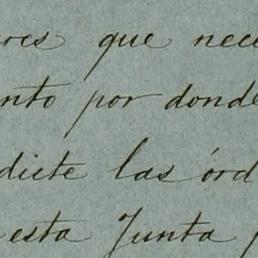 ores que nece
nto por donde
dicte las órd
esta Junta p